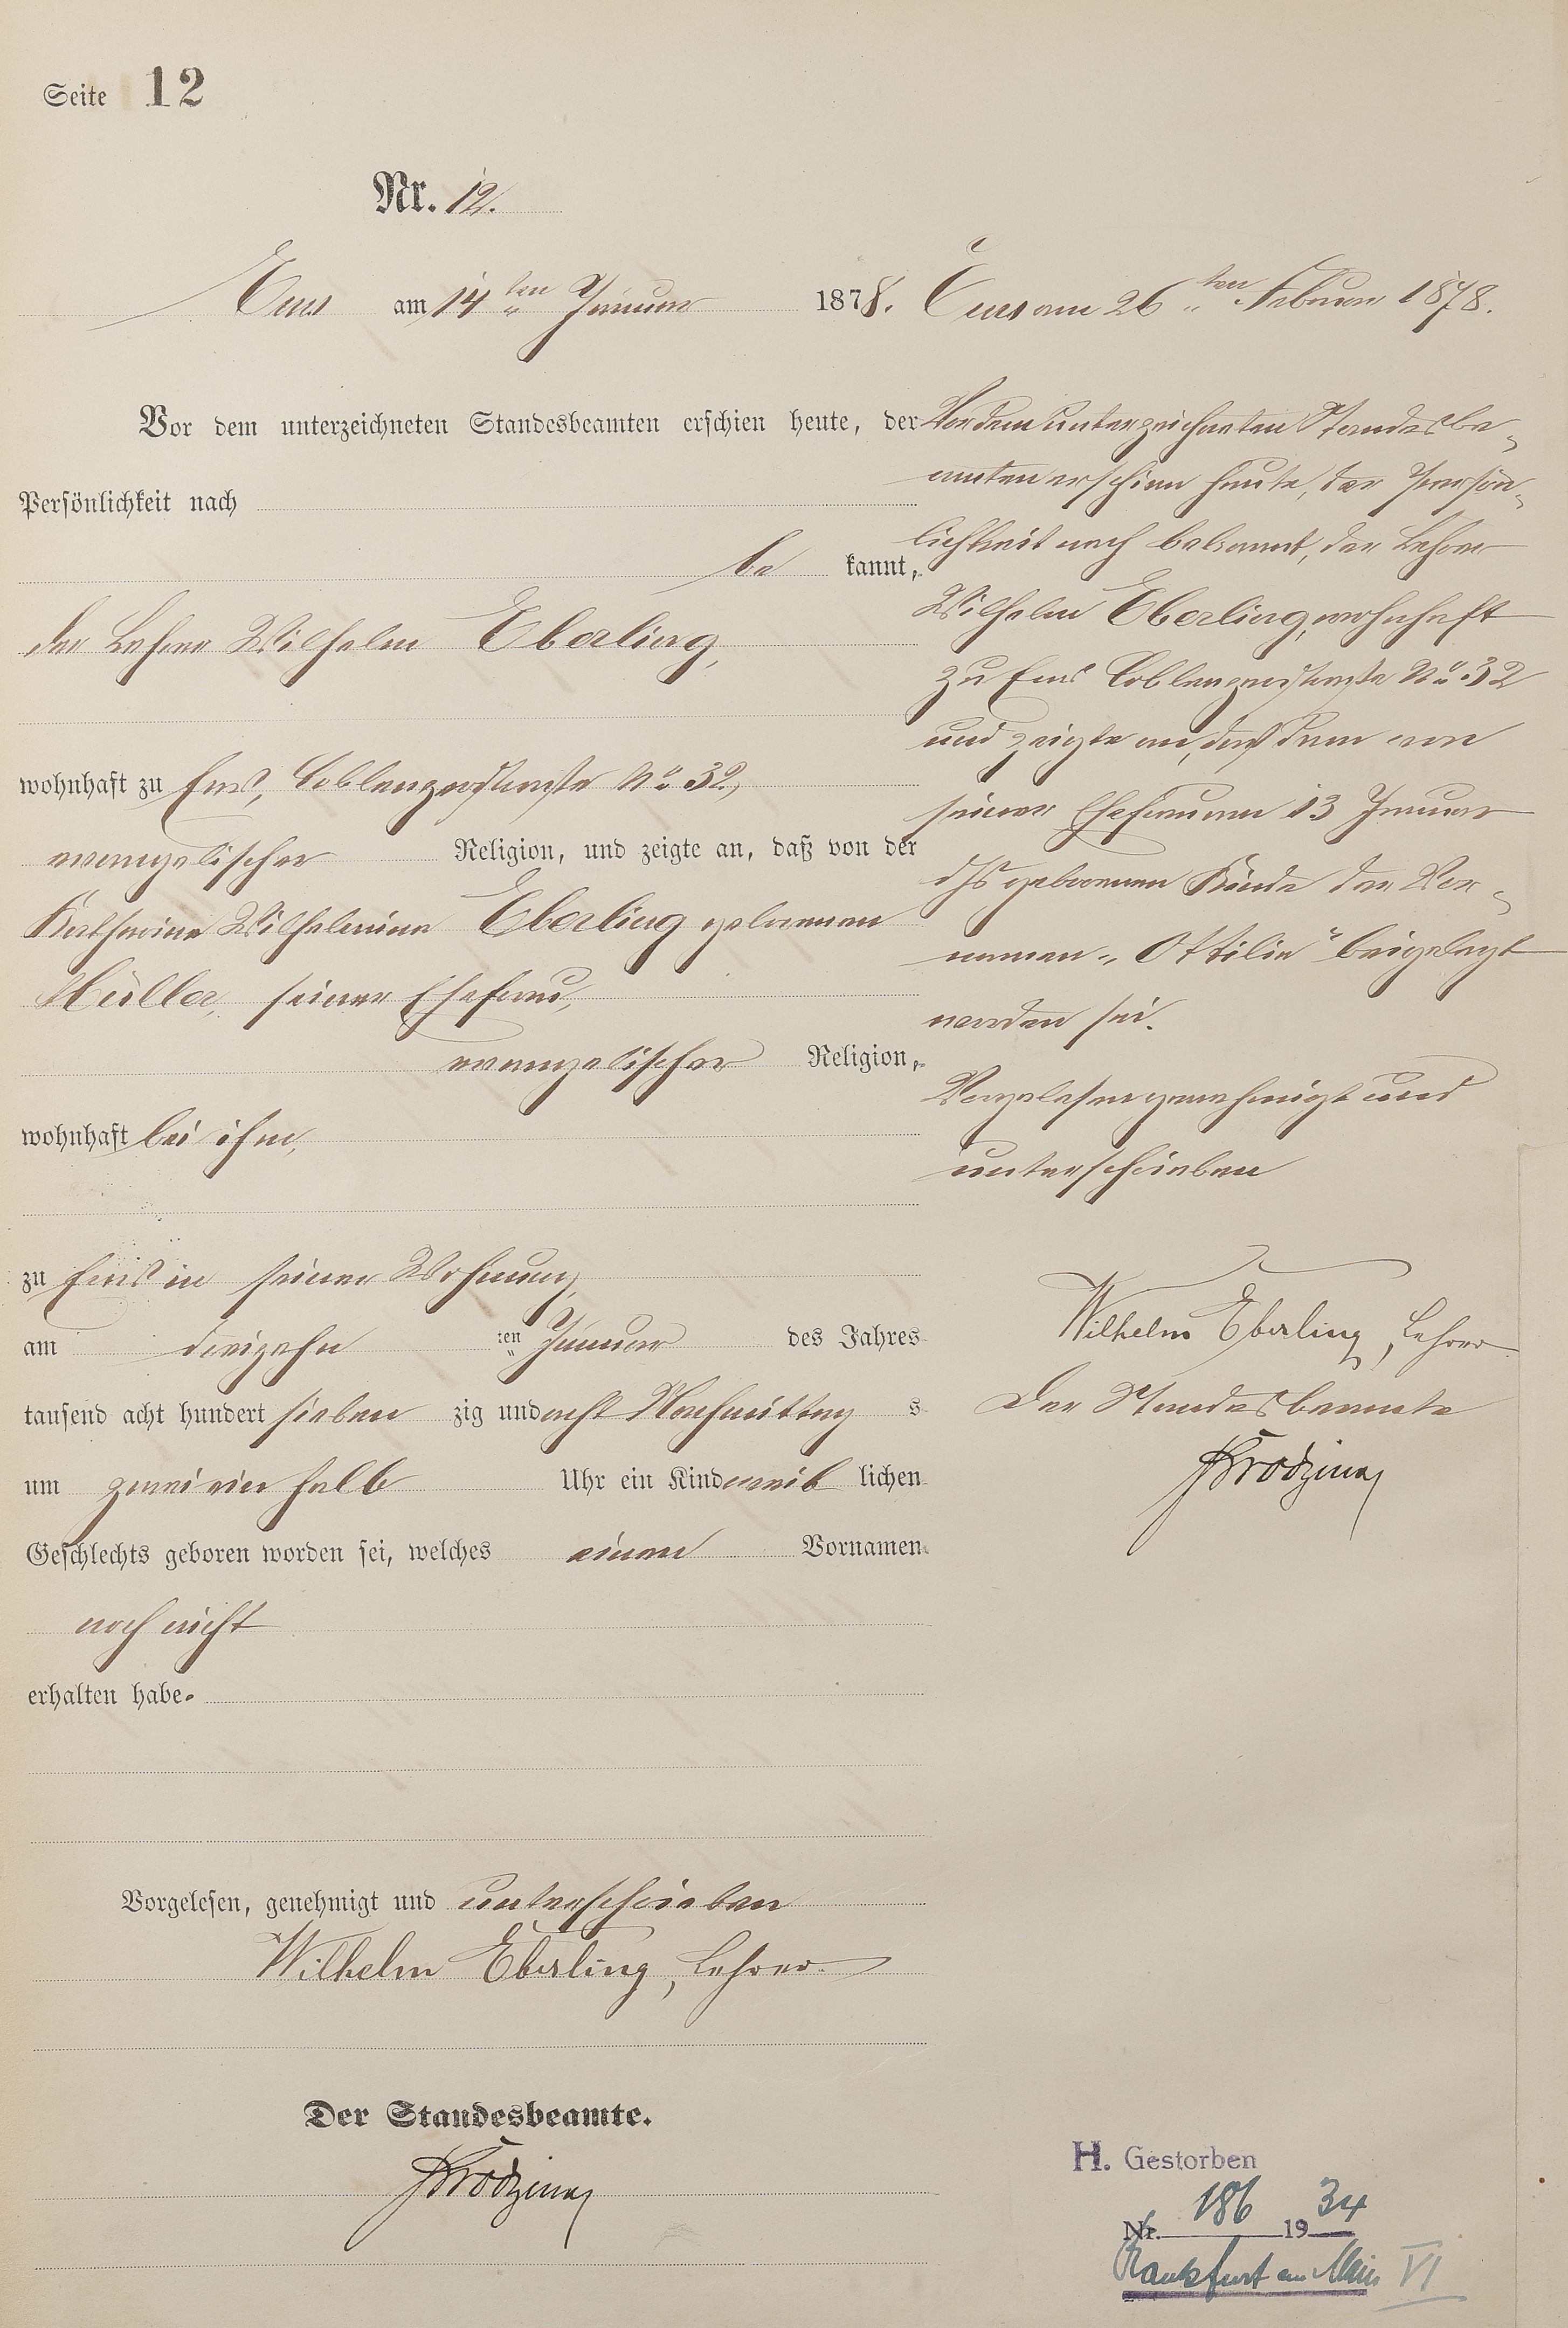 Seite 12
Nr. 12.
Ems am 14ten Januar 1878.
Vor dem unterzeichneten Standesbeamten erschien heute, der
Persönlichkeit nach
be kannt,
der Lehrer Wilhelm Eberling,
wohnhaft zu Ems, Coblenzerstraße No 32,
evangelischer Religion, und zeigte an, daß von der
Katharine Wilhelmine Eberling geborenen
Müller, seiner Ehefrau,
evangelischer Religion,
wohnhaft bei ihm,
zu Ems in seiner Wohnung,
am dreizehn ten Januar des Jahres
tausend acht hundert sieben zig und acht Nachmittag s
um zwei ein halb Uhr ein Kind weib lichen
Geschlechts geboren worden sei, welches einen Vornamen
noch nicht
erhalten habe.
Vorgelesen, genehmigt und unterschrieben
Wilhelm Eberling, Lehrer
Der Standesbeamte.
Ems am 26ten Februar 1878.
Vor dem unterzeichneten Standesbe-
amten erschien heute, der Persön-
lichkeit nach bekannt, der Lehrer
Wilhelm Eberling, wohnhaft
zu Ems Coblenzerstraße No 32
und zeigte an, daß dem von
seiner Ehefrau am 13 Januar
dJs geborenen Kinde der Vor-
namen „Ottilie“ beigelegt
worden sei.
Vorgelesen genehmigt und
unterschrieben
Wilhelm Eberling, Lehrer
Der Standesbeamte
H. Gestorben
Nr. 186 1934
Frankfurt am Main VI